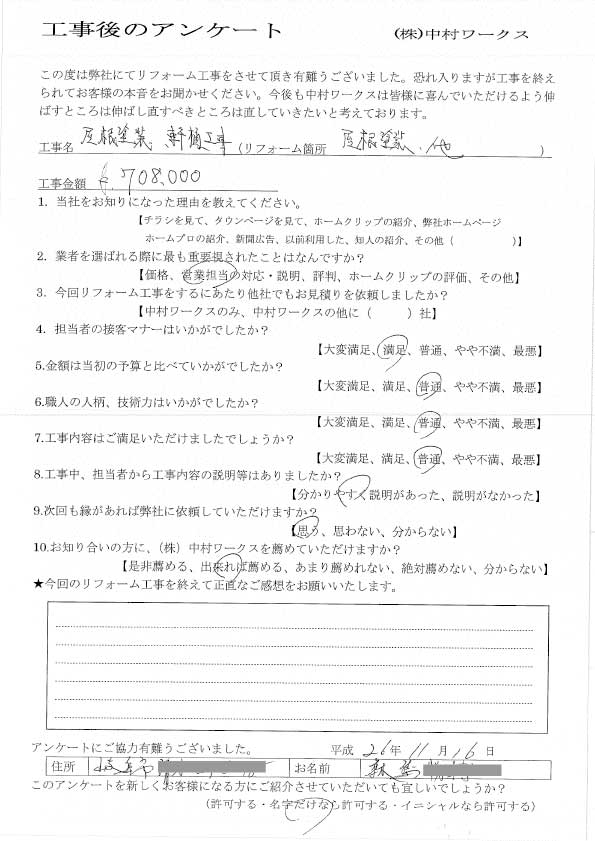 工事後のアンケート　(株)中村ワークス
この度は弊社にてリフォーム工事をさせて頂き有難うございました。恐れ入りますが工事を終え
られてお客様の本音をお聞かせください。今後も中村ワークスは皆様に喜んでいただけるよう伸
ばすところは伸ばし直すべきところは直していきたいと考えております。
工事名　屋根塗装、軒樋工事　(リフォーム箇所　屋根塗装、他　)
工事金額　¥708,000
1. 当社をお知りになった理由を教えてください。
【チラシを見て、タウンページを見て、ホームクリップの紹介、弊社ホームページ
ホームプロの紹介、新聞広告、以前利用した、知人の紹介、その他（　　）】
2. 業者を選ばれる際に最も重要視されたことはなんですか?
【価格、営業担当の対応・説明、評判、ホームクリップの評価、その他】
3. 今回リフォーム工事をするにあたり他社でもお見積りを依頼しましたか?
【中村ワークスのみ、中村ワークスの他に（　　）社】
4. 担当者の接客マナーはいかがでしたか?
【大変満足、満足、普通、やや不満、最悪】
5.金額は当初の予算と比べていかがでしたか?
【大変満足、満足、普通、やや不満、最悪】
6.職人の人柄、技術力はいかがでしたか?
【大変満足、満足、普通、やや不満、最悪】
7.工事内容はご満足いただけましたでしょうか?
【大変満足、満足、普通、やや不満、最悪】
8.工事中、担当者から工事内容の説明等はありましたか?
【分かりやすく説明があった、説明がなかった】
9.次回も縁があれば弊社に依頼していただけますか?
【思う、思わない、分からない】
10.お知り合いの方に、(株)中村ワークスを薦めていただけますか?
【是非薦める、出来れば薦める、あまり薦めれない、絶対薦めない、分からない】
★今回のリフォーム工事を終えて正直なご感想をお願いいたします。
アンケートにご協力有難うございました。　平成 26年 11月 16日
住所　お名前
このアンケートを新しくお客様になる方にご紹介させていただいても宜しいでしょうか?
(許可する・名字だけなら許可する・イニシャルなら許可する)